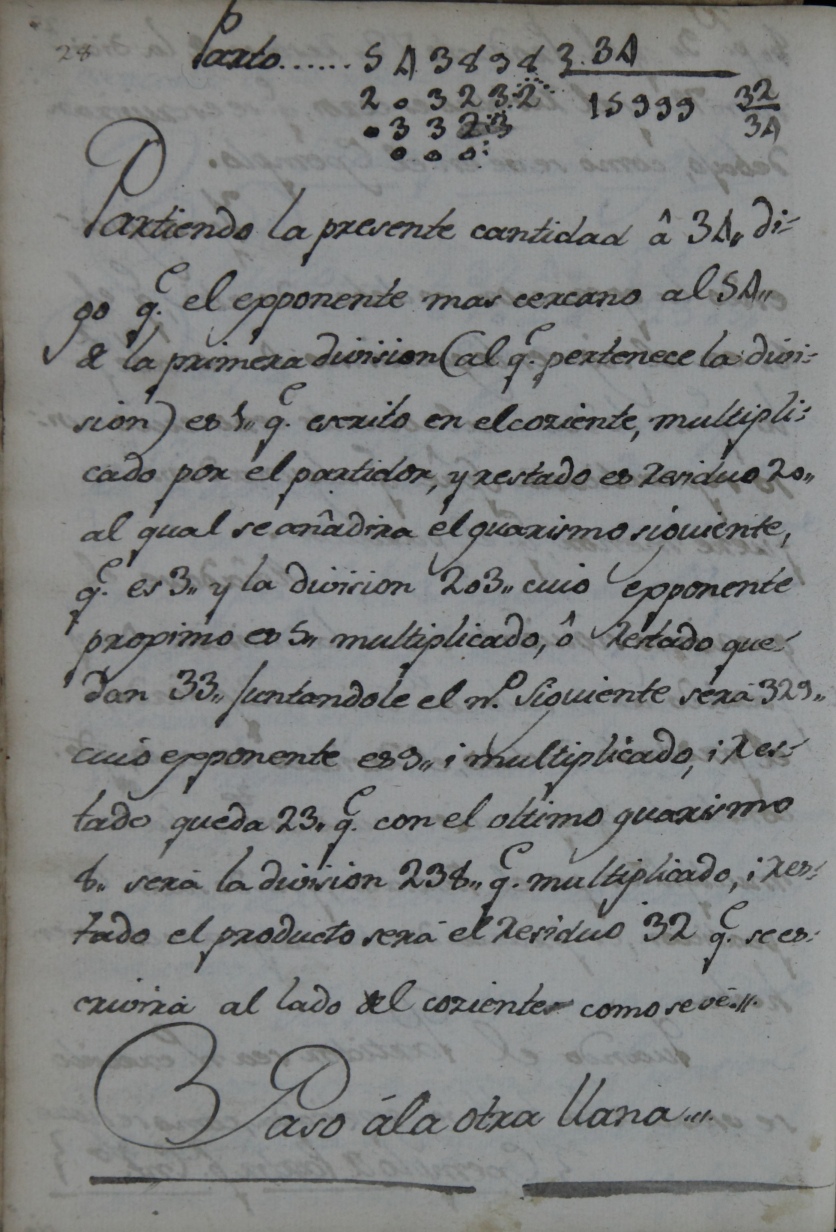 28
Parto...... 543898 3. 34
2.32332 15999 32
.3323 34
...
Partiendo la presente cantidad â 34,, di-
go q.e el exponente mas cercano al 54,,
de la primera division (al q.e pertenece la divi-
sion) es 1,, q.e escrito en el coziente, multipli-
cado por el partidor, y restado es residuo 20,,
al qual se añadira el guarismo siguiente,
q.e es 3,, y la division 203,, cuio exponente
proximo es 5,, multiplicado, ô restado que-
dan 33,, juntandole el n.o siguiente será 329,,
cuio exponente es 9,, i multiplicado, i res-
tado queda 23,, q.e con el oltimo guarismo
8,, será la division 238,, q.e multiplicado, i res-
tado el producto será el residuo 32 q.e se es-
crivirá al lado del coziente como se vé.,,.
Paso á la otra llana,,,.